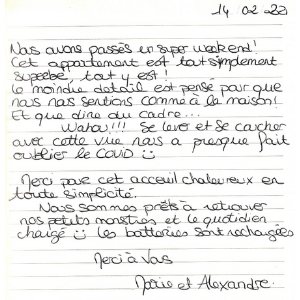 14 02 22
Nous avons passés un super weekend!
Cet appartement est tout simplement
superbe, tout y est!
Le moindre detail est pensé pour que
nous nous sentions comme à la maison!
Et que dire du cadre...
Wahou!!! Se lever et se coucher
avec cette vue nous a presque fait
oublier le COVID ☺
Merci pour cet acceuil chaleureux en
toute simplicité.
Nous sommes prêts à retrouver
nos petits monstres et le quotidien
chargé ☺ les batteries sont rechargées
Merci à Vous
Marie et Alexandre.